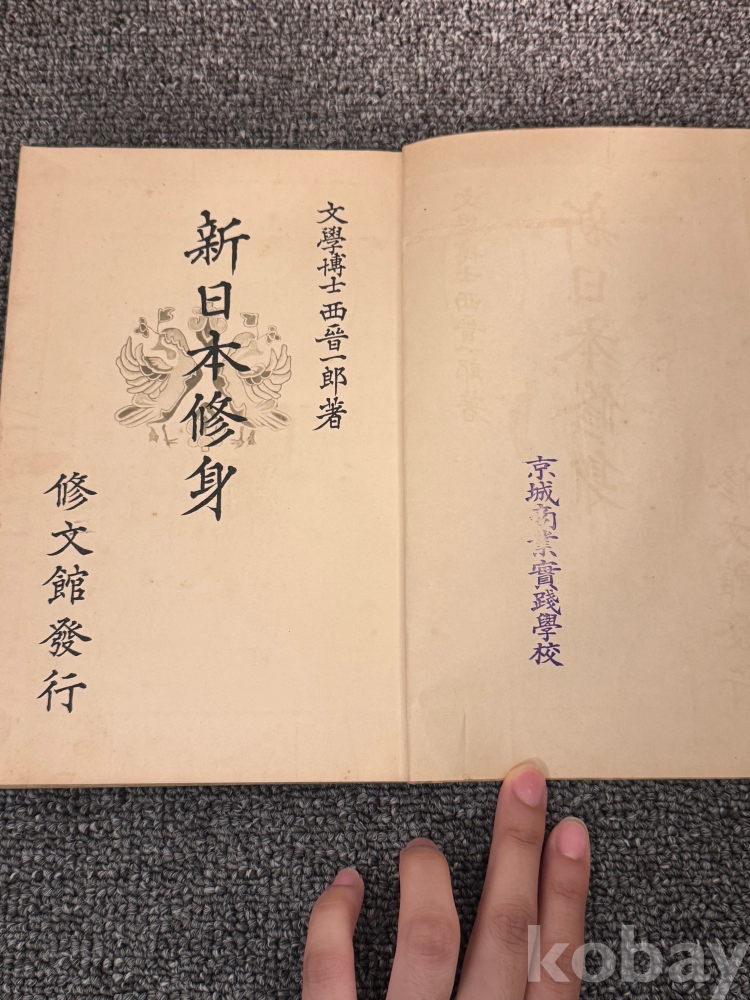 文學博士西晉一郎著
新日本修身
修文館發行
京城商業實踐學校
kobay